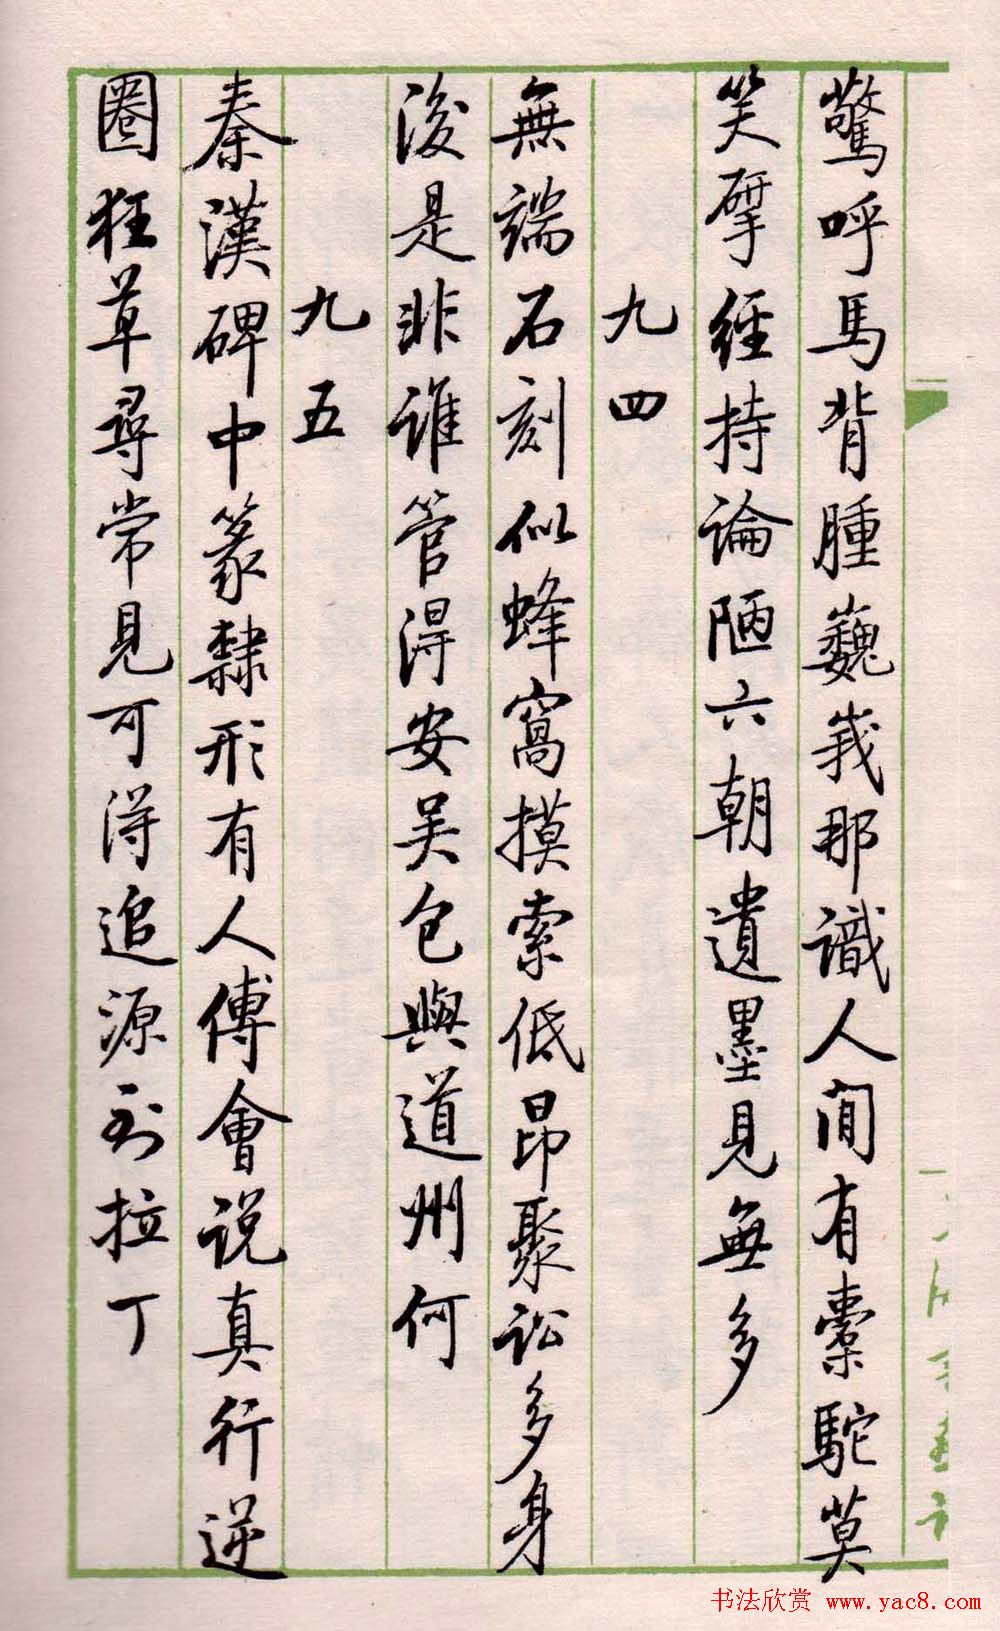 驚呼馬背腫巍峩那識人间有橐駝莫
笑揅經持論陋六朝遺墨見無多
九四
無端石刻似蜂窩摸索低昂聚訟多身
後是非谁管得安吴包與道州何
九五
秦漢碑中篆隸形有人傅會说真行逆
圈狂草尋常見可得追源到拉丁
书法欣赏 www.yac8.com